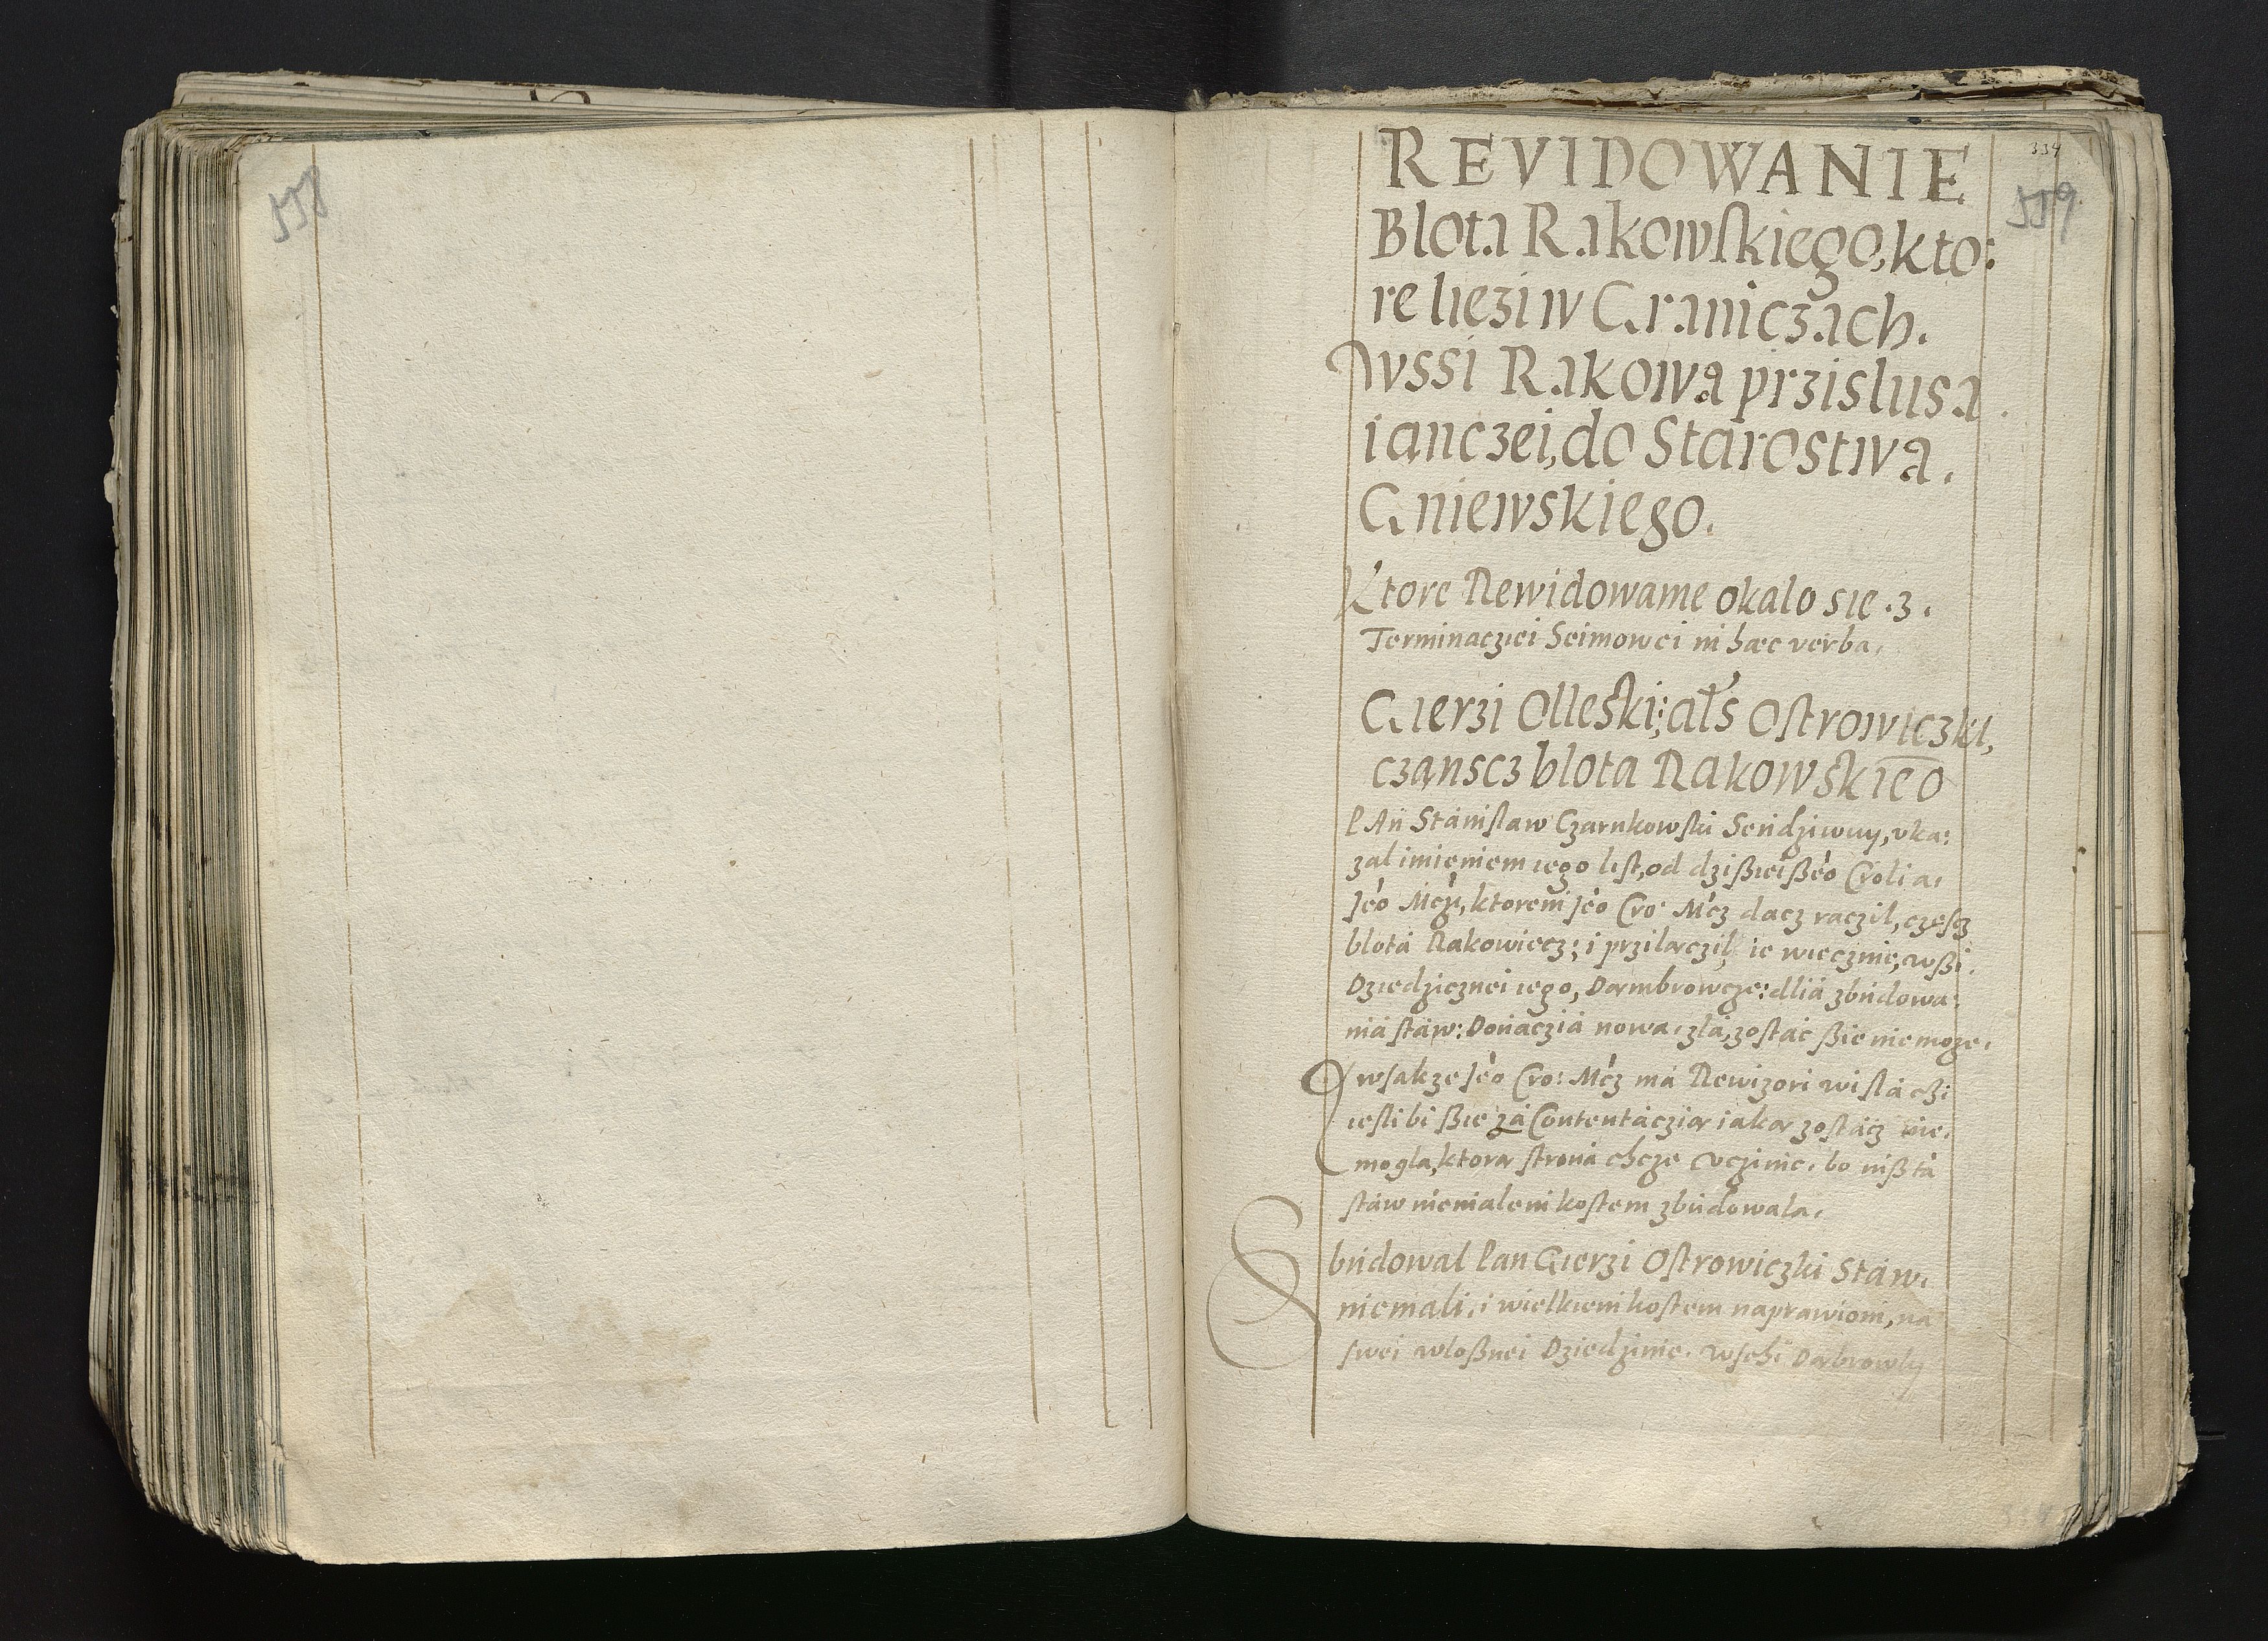 558
334
559
REVIDOWANIE
Blota Rakowſkiego, kto:
re liezi w Graniczach.
wssi Rakowa przislusa
ianczei, do Starostwa.
Gniewskiego.
Ktore Rewidowanie okalo sie .z.
Terminacziei Seimowei in hæc verba,
Gierzi Olleski; als Oſtrowiczki,
czanscz blota Rakowskieo
PAn Stanisław Czarnkowſki Sendziwuy, vka:
zal imieniem iego liſt, od dzißieißeo Crolia,
Jeo Mczi, ktorem Jeo Cro: Mcz dacz raczil, czeſcz
blota Rakowiecz; i przilaczil ie wiecznie, wßi.
Dziedzicznei iego, Dambrowcze: dlia zbudowa:
nia ſtaw: Donaczia nowa, zla, zoſtac ßie nie moze.
wſakze Jeo Cro: Mcz ma Rewizori wiſlachi
ieſli bi ßie za Contentaczia iaka zoſtacz nie,
mogla, ktora ſtrona chcze vczinic, bo niß ta
ſtaw niemalem koſtem zbudowala.
budowal Pan Gierzi Oſtrowiczki Staw.
niemali, i wielkiem koſtem naprawioni, na
ſwei wloßnei Dziedzinie. wſchi Dabrowly